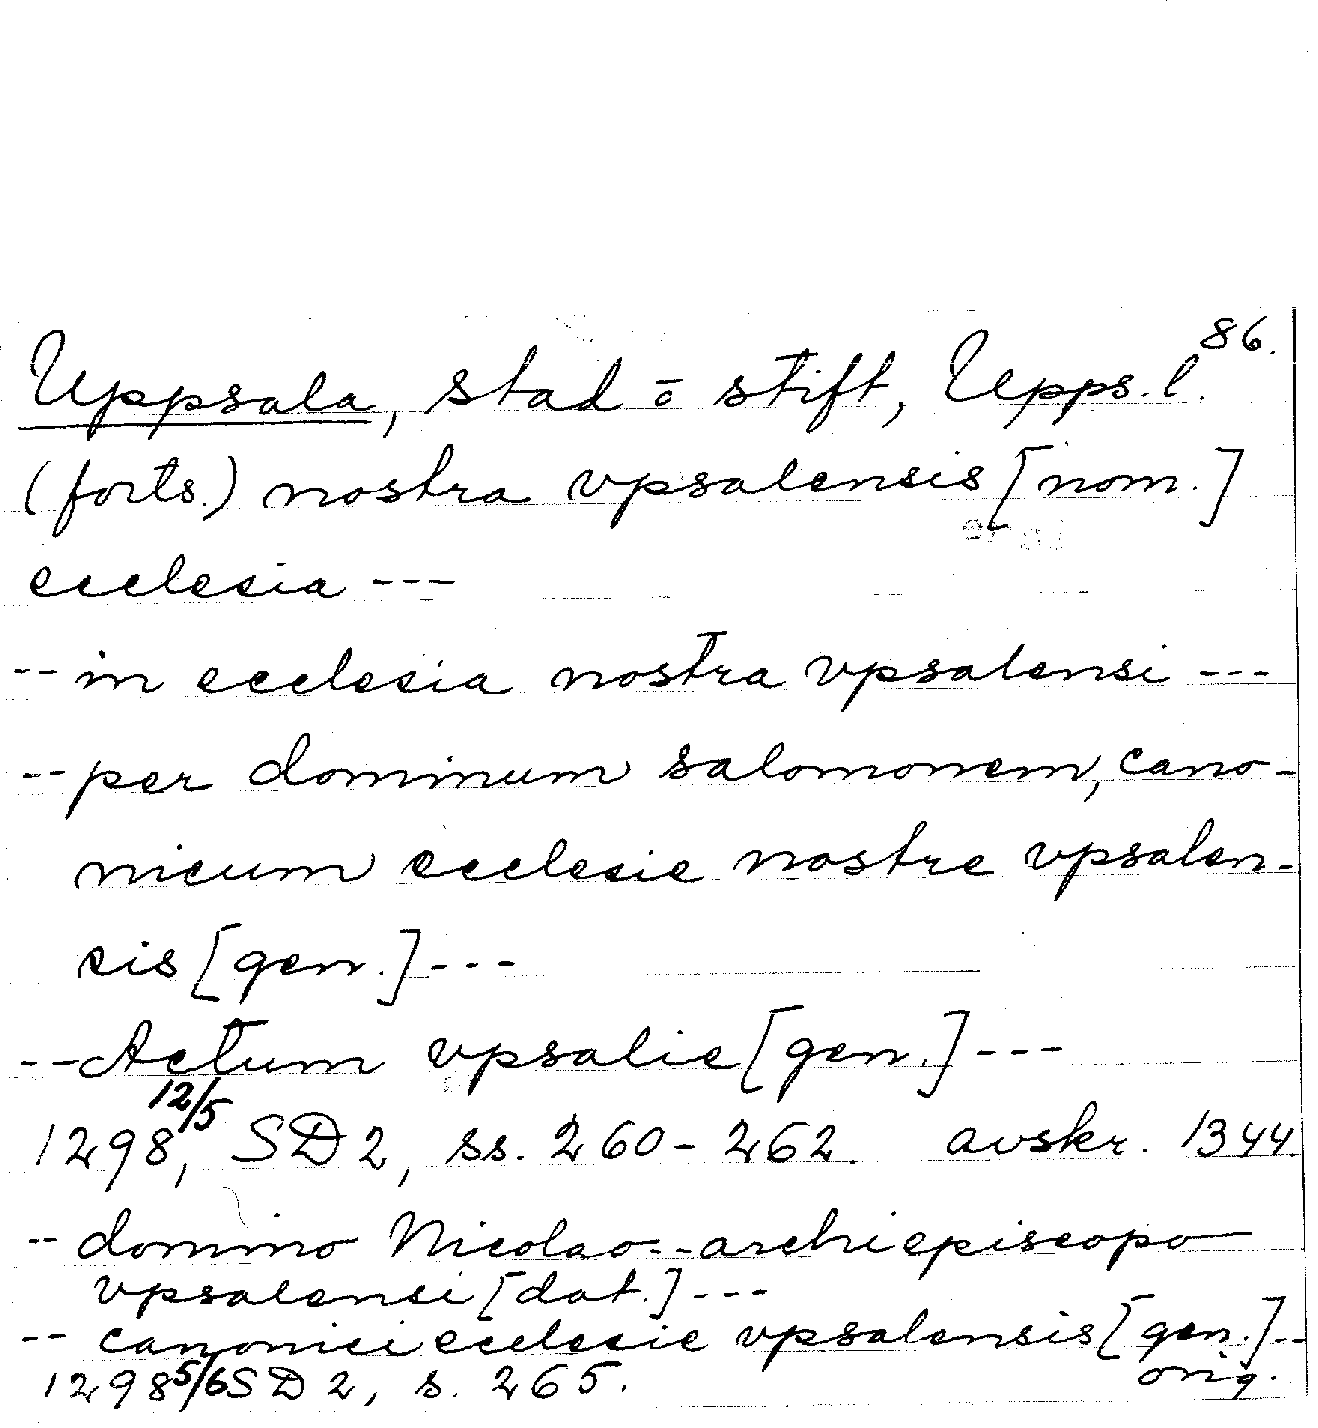 86.
Uppsala, stad o stift, Upps.l.
(forts.) nostra vpsalensis [nom.]
ecclesia ---
-- in ecclesia nostra vpsalensi ---
-- per dominum salomonem, cano-
nicum ecclesie nostre vpsalen-
sis [gen.] ---
-- Actum vpsalie [gen.] ---
1298 12/5, SD 2, ss. 260-262. avskr. 1344.
-- domino Nicolao -- archiepiscopo
vpsalensi [dat.] ---
-- canonici ecclesie vpsalensis [gen.] --
1298 5/6 SD 2, s. 265. orig.